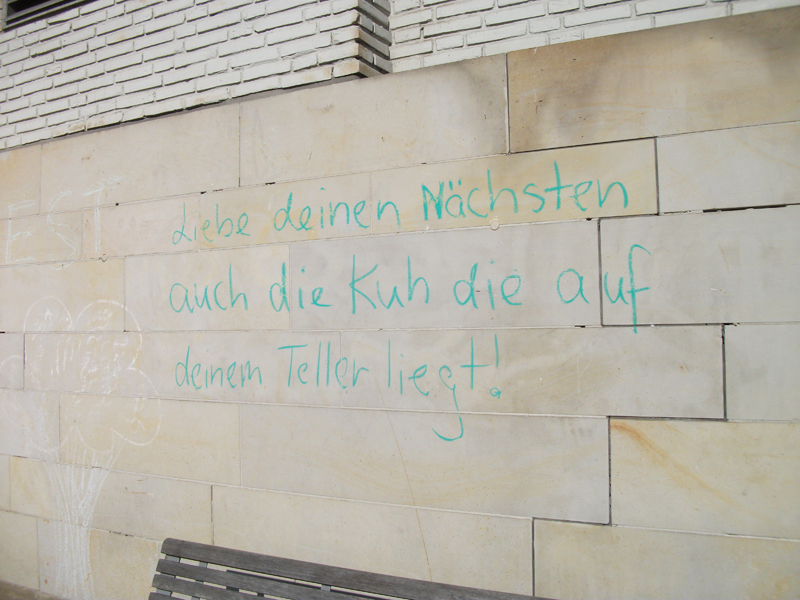 Liebe deinen Nächsten
auch die Kuh die auf
deinem Teller liegt!
EST